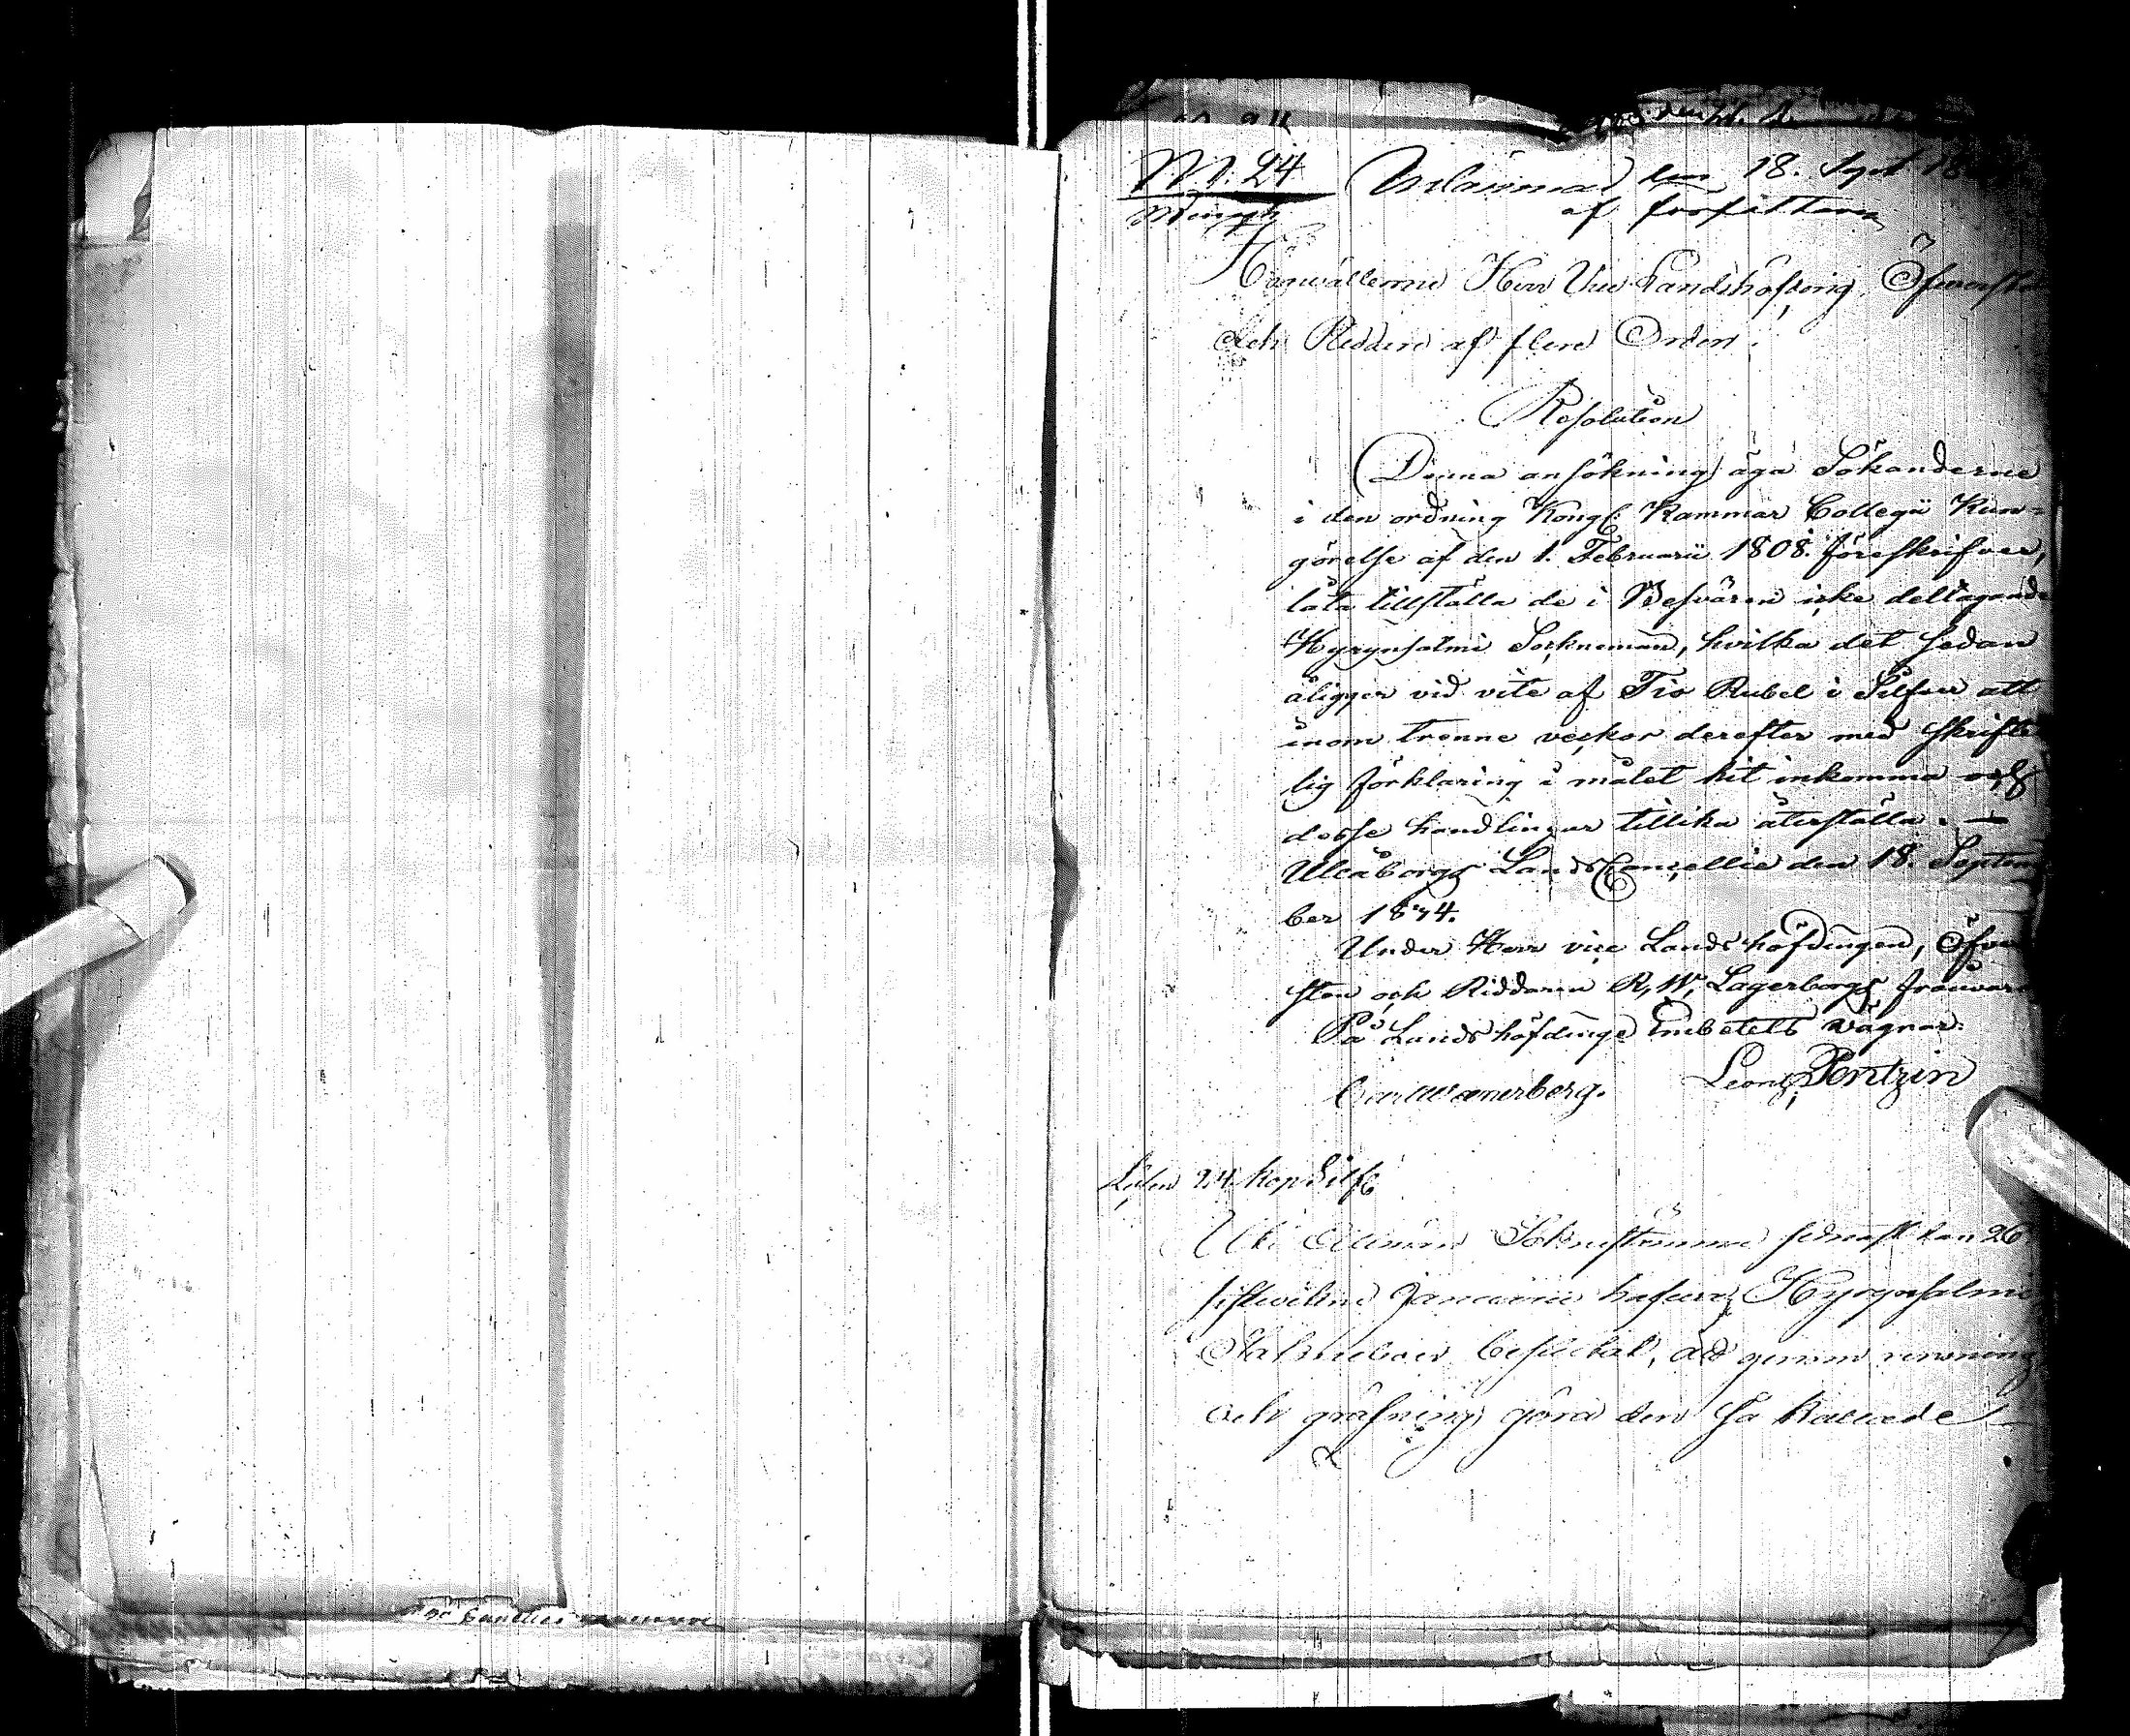 N. 24 Inlämnad den 18. Sept 18
af
Högvälborne Herr Vice Landshöfding, Öfverste
och Riddare af flere Orden.
Resolution
Denna ansökning äga Sökanderne
i den ordning Kongl. Kammar Collegii Kun-
görelse af den 1. Februarii 1808. föreskrifver,
låta tillställa de i Besvären icke deltagande
Hyrynsalmi Sockneman, hvilka det sedan
åligger vid vite af Tio Rubel i Silfver att
inom trenne veckor derefter med skrift-
lig förklaring i målet hit inkomma och
desse handlingar tillika återställa. —
Uleåborgs LandsCancellie den 18. Septem
ber 1834.
Under Herr vice Landshöfdingen, Öfver
sten och Riddaren R. W. Lagerborgs frånvaro
På Landshöfdinge Embetets vägnar:
Wænerberg. Pentzin
Lösen 24 kop Silf
Sockneståmma sednast den 26
sistvikne Januarii hafva Hyrynsalmi
beslutat, att genom rensning
och gräfning göra den så kallade